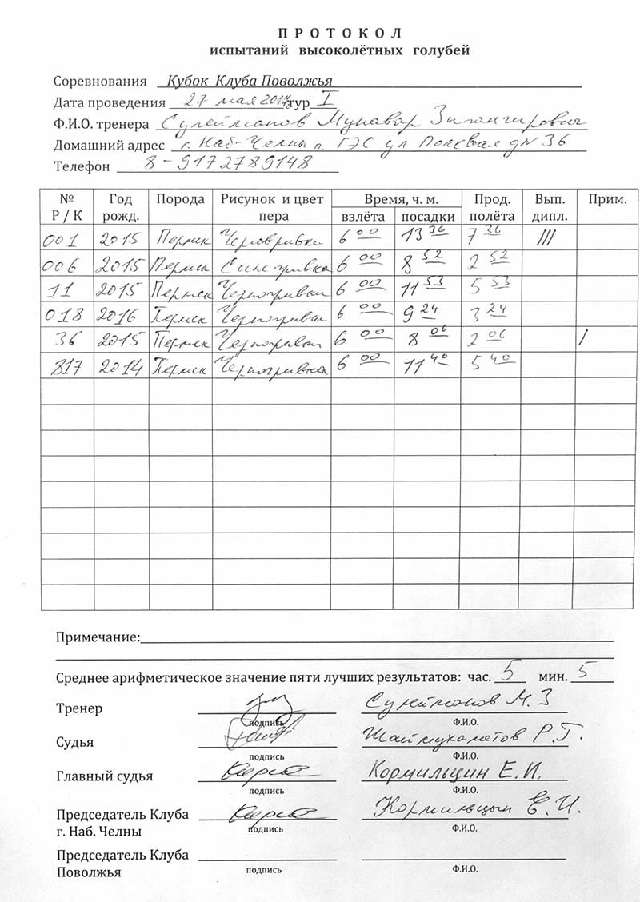 ПРОТОКОЛ
испытаний высоколётных голубей
Соревнования Кубок Клуба Поволжья
Дата проведения 27 мая 2017 тур I
Ф.И.О. тренера Сулейманов Мунавар
Домашний адрес г. Наб-Челны п. ГЭС ул д№ 36
Телефон 8-9172789148
№ Р / К Год рожд. Порода Рисунок и цвет пера Время, ч. м. взлёта посадки Прод. полёта Вып. дипл. Прим.
001 2015 Пермск Черногривый 6 00 13 36 7 36 III
006 2015 Пермск Синегривка 6 00 8 52 2 52
11 2015 Пермск Черногривая 6 00 11 53 5 53
018 2016 Пермск Черногривая 6 00 9 24 3 24
36 2015 Пермск Черногривая 6 00 8 06 2 06 /
817 2014 Пермск Черногривка 6 00 11 40 5 40
Примечание:
Среднее арифметическое значение пяти лучших результатов: час. 5 мин. 5
Тренер Сулейманов М.З
подпись Ф.И.О.
Судья Шаймухаметов Р.Г.
подпись Ф.И.О.
Главный судья Кормильцин Е.И.
подпись Ф.И.О.
Председатель Клуба Кормильцын Е.И.
г. Наб. Челны подпись Ф.И.О.
Председатель Клуба
Поволжья подпись Ф.И.О.